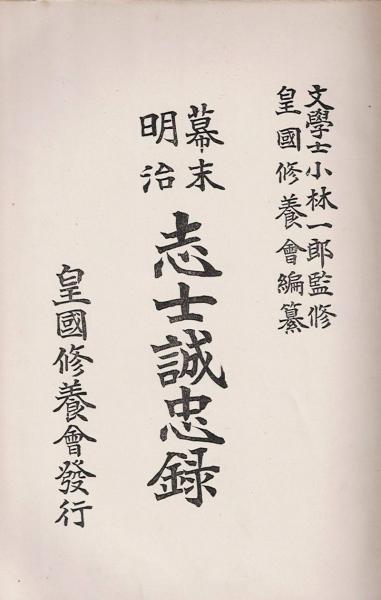 文學士小林一郎監修
皇國修養會編纂
幕末
明治
志士誠忠録
皇國修養會發行